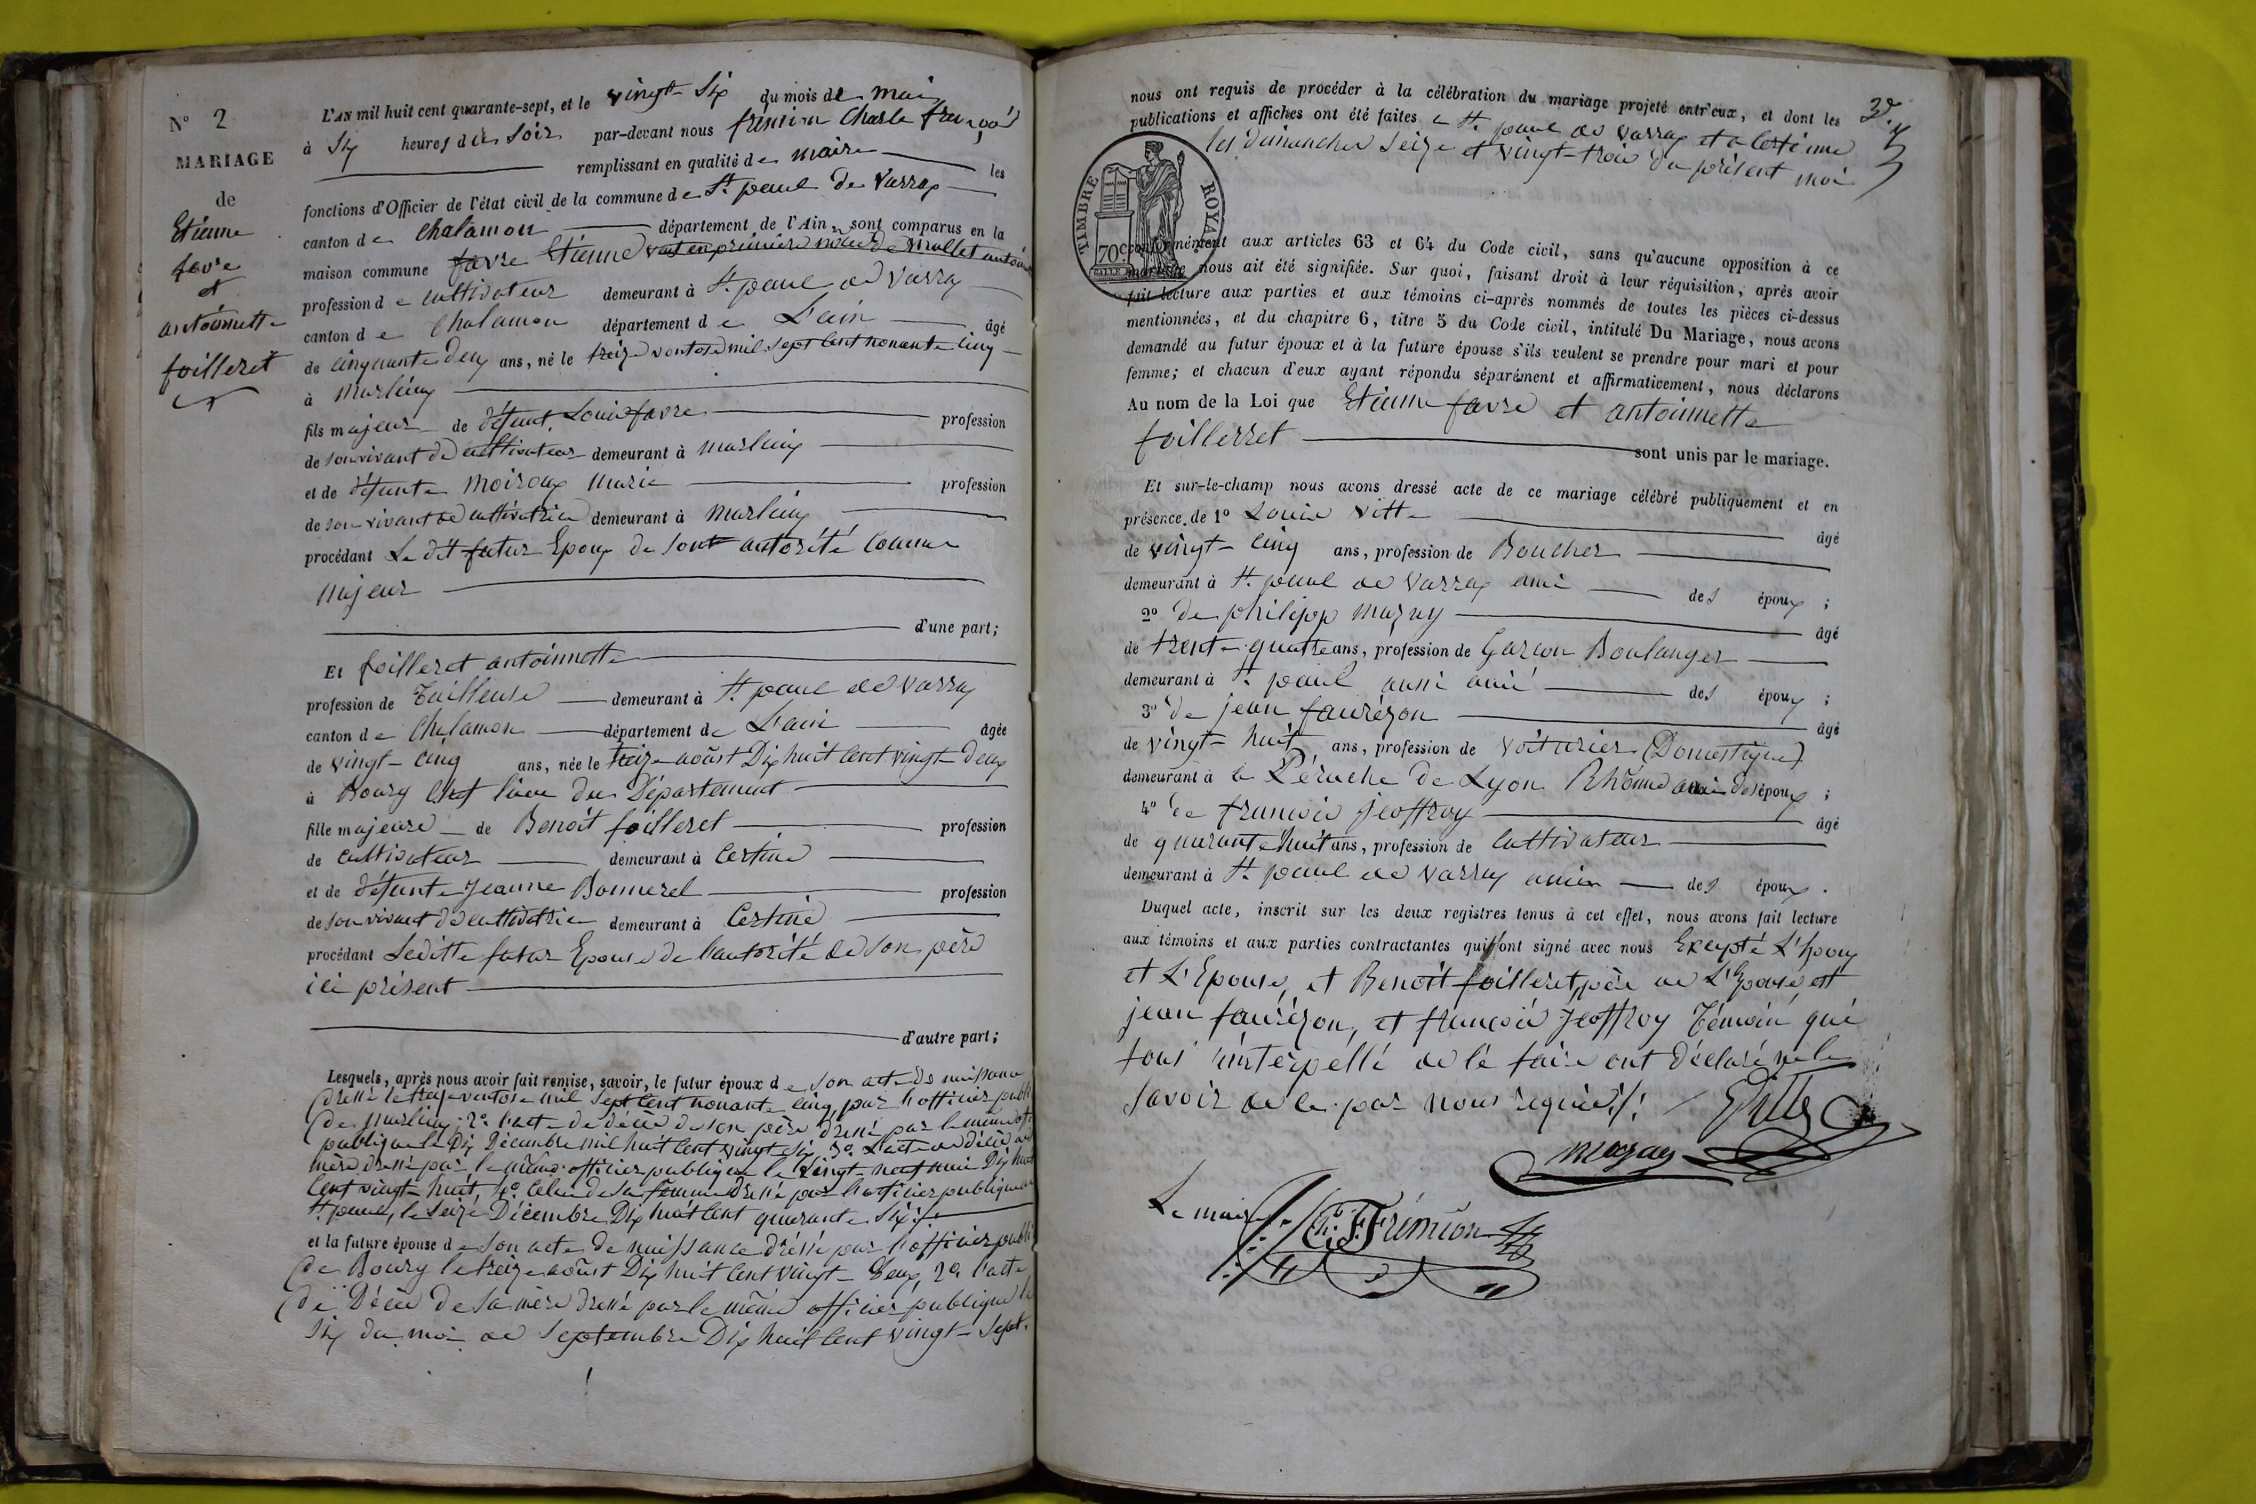 N° 2
MARIAGE
de
Etienne
favre
et
antoinette
foilleret
L'AN mil huit cent quarante-sept, et le vingt-Six du mois de mai
à Six heures du Soir par-devant nous frémion Charle françois
remplissant en qualité de maire les
fonctions d'Officier de l'état civil de la commune de St paul de Varrax
canton de Chalamon département de l'Ain, sont comparus en la
maison commune favre Etienne veuf en première noce de Mollet antoin
profession de cultivateur demeurant à St paul de Varrax
canton de Chalamon département de L'ain âgé
de cinquante deux ans, né le treize ventose mil sept cent nonante cinq
à Marlieux
fils majeur de défunt Louis favre profession
de son vivant de cultivateur demeurant à marlieux
et de défunte Moiroux Marie profession
de son vivant de cultivatrice demeurant à Marlieux
procédant Le dit futur Epoux de sont autorité comme
majeur
d'une part;
Et foilleret antoinette
profession de Tailleuse demeurant à St paul de Varrax
canton de Chalamon département de L'ain âgée
de vingt-cinq ans, née le treize août Dix huit cent vingt-deux
à Bourg Chef lieu du Département
fille majeure de Benoit foilleret profession
de cultivateur demeurant à Certine
et de défunte Jeanne Bonnerel profession
de son vivant de cultivatrice demeurant à Certine
procédant Leditte futur Epouse de l'autorité de son père
ici présent
d'autre part;
Lesquels, après nous avoir fait remise, savoir, le futur époux de son acte de naissance
dressé le treize ventose mil sept cent nonante cinq, par l'officier publi
de Marlieux; 2° l'acte de décès de son père dressé par le même offi
publique le Dix Décembre mil huit cent vingt six 3° L'acte de décès de
mère dressé par le même officier publique le vingt-neuf mai Dix huit
cent vingt-huit, 4° Celui de sa femme dressé par l'officier publique
St paul, le Seize Décembre Dix huit cent quarante Six
et la future épouse de son acte de naissance dréssé par l'officier publi
de Bourg le treize août Dix huit cent vingt-deux, 2° l'acte
de Décès de sa mère dressé par le même officier publique le
six du moi de Septembre Dix huit cent vingt-sept.
nous ont requis de procéder à la célébration du mariage projeté entr'eux, et dont les
publications et affiches ont été faites a St paul de Varrax et a Certine
les Dimanches Seize et vingt-trois du présent moi
TIMBRE ROYAL
70c
conformément aux articles 63 et 64 du Code civil, sans qu'aucune opposition à ce
mariage nous ait été signifiée. Sur quoi, faisant droit à leur réquisition, après avoir
fait lecture aux parties et aux témoins ci-après nommés de toutes les pièces ci-dessus
mentionnées, et du chapitre 6, titre 5 du Code civil, intitulé Du Mariage, nous avons
demandé au futur époux et à la future épouse s'ils veulent se prendre pour mari et pour
femme; et chacun d'eux ayant répondu séparément et affirmativement, nous déclarons
Au nom de la Loi que Etienne favre et antoinette
foilleret
sont unis par le mariage.
Et sur-le-champ nous avons dressé acte de ce mariage célébré publiquement et en
présence de 1° Louis Vitte âgé
de vingt-cinq ans, profession de Boucher
demeurant à St paul de Varrax ami des époux ;
2° de philipp Mazuy âgé
de trente-quatre ans, profession de Garcon Boulanger
demeurant à St paul aussi ami des époux ;
3° de jean faurézon âgé
de vingt-huit ans, profession de voiturier (Domestique)
demeurant à la Pérache de Lyon Rhône ami des époux ;
4° de francois jeoffroy âgé
de quarante huit ans, profession de Cultivateur
demeurant à St paul de Varrax ami des époux.
Duquel acte, inscrit sur les deux registres tenus à cet effet, nous avons fait lecture
aux témoins et aux parties contractantes qui ont signé avec nous Excepté L'Epoux
et L'Epouse, et Benoit foilleret, père de L'Epouse, et
jean faurézon, et francois jeoffroy Témoin qui
tous interpellé de lé faire ont déclaré ne le
savoir de ce par nous requis
mazuy
Le maire
Ch. F. Frémion